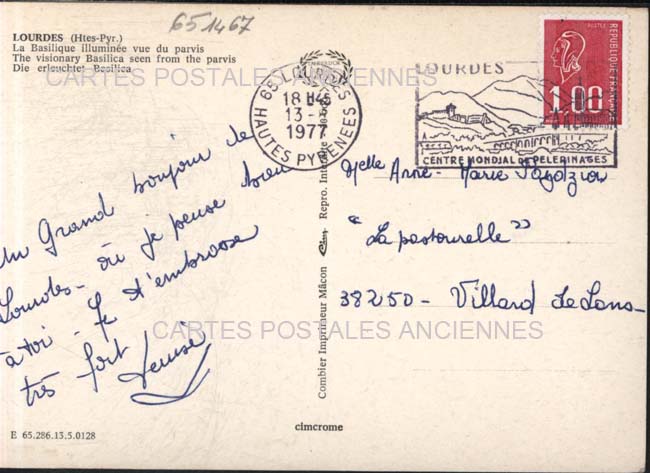 651467
LOURDES (Htes-Pyr.)
La Basilique illuminée vue du parvis
The visionary Basilica seen from the parvis
Die erleuchtet Basilica
CARTES POSTALES ANCIENNES
65 LOURDES
18 H45
13 -
1977
HAUTES PYRENEES
LOURDES
CENTRE MONDIAL DE PELERINAGES
POSTES
1,00
REPUBLIQUE FRANÇAISE
un Grand bonjour de
Lourdes - où je pense bien
à toi - Je t'embrasse
très fort Denise
Combier Imprimeur Mâcon Cim Repro. Interdite
Melle Anne-Marie
"La pastourelle"
38250 - Villard de Lans
CARTES POSTALES ANCIENNES
cimcrome
E 65.286.13.5.0128